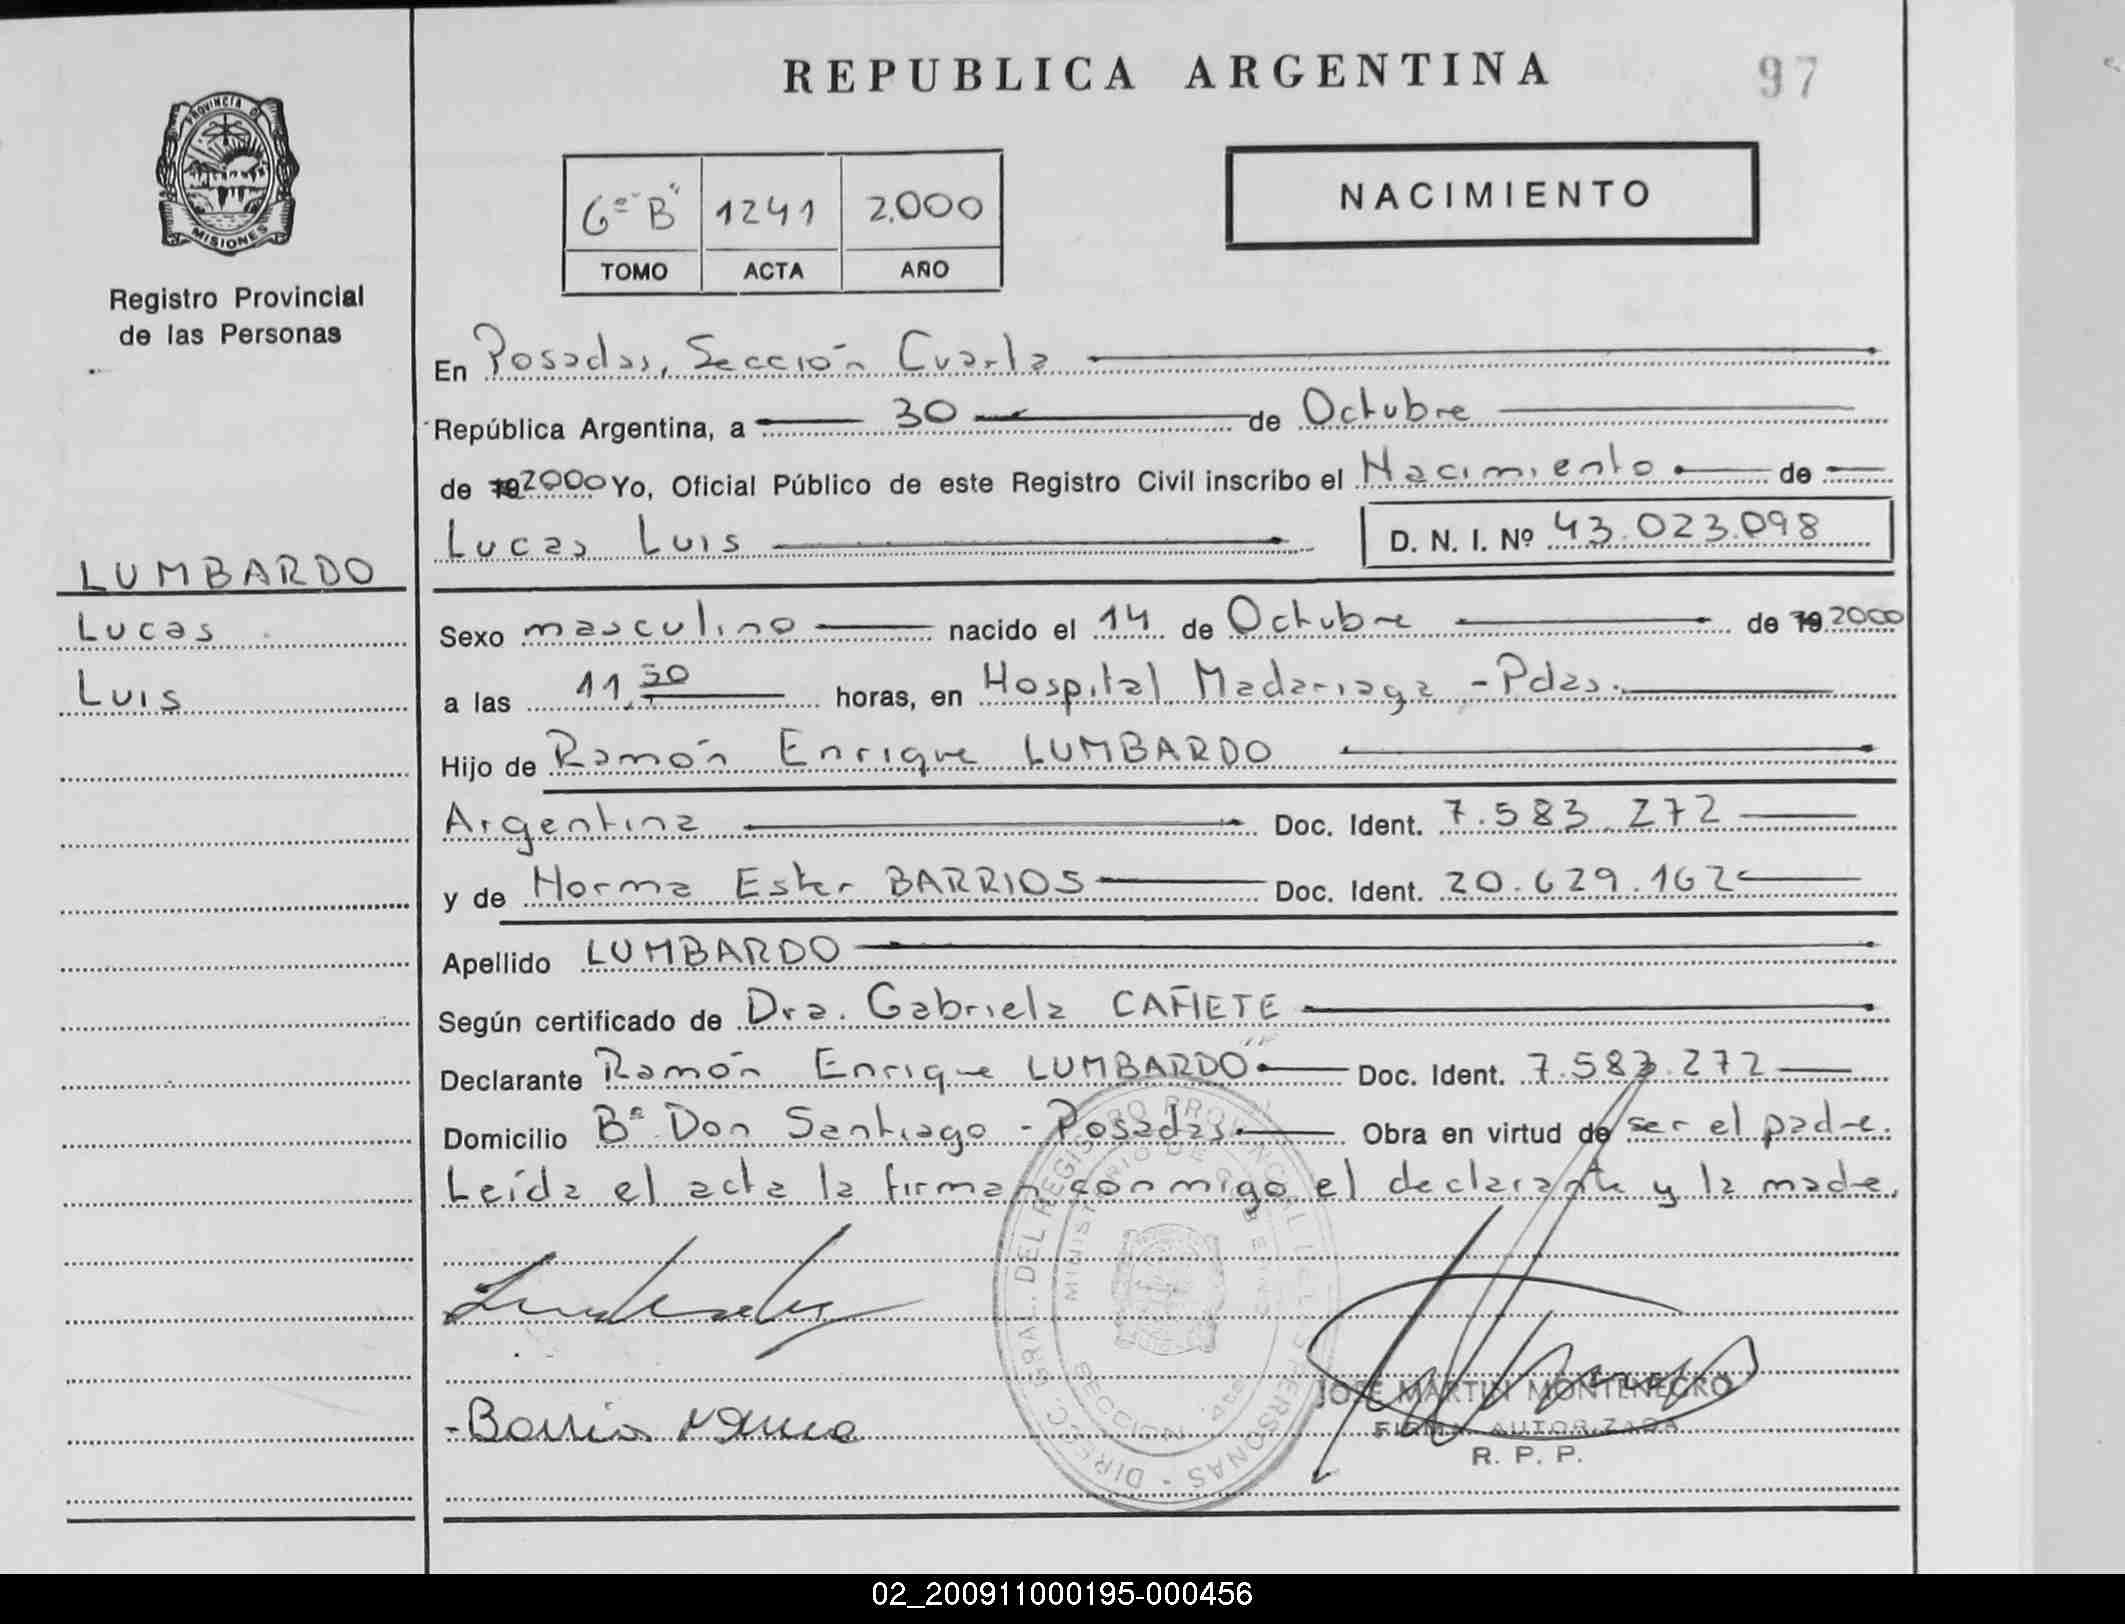 REPUBLICA ARGENTINA
97
PROVINCIA D
MISIONES
Registro Provincial
de las Personas
6º "B" 1241 2.000
TOMO ACTA AÑO
NACIMIENTO
En Posadas, Sección Cuarta
República Argentina, a 30 de Octubre
de 19 2000 Yo, Oficial Público de este Registro Civil inscribo el Nacimiento de
Lucas Luis D. N. I. Nº 43.023.098
LUMBARDO
Lucas
Luis
Sexo masculino nacido el 14 de Octubre de 19 2000
a las 11,50 horas, en Hospital Madariaga - Pdas.
Hijo de Ramón Enrique LUMBARDO
Argentina Doc. Ident. 7.583.272
y de Norma Ester BARRIOS Doc. Ident. 20.629.162
Apellido LUMBARDO
Según certificado de Dra. Gabriela CAÑETE
Declarante Ramón Enrique LUMBARDO Doc. Ident. 7.583.272
Domicilio Bº Don Santiago - Posadas Obra en virtud de ser el padre.
Leída el acta la firman conmigo el declarante y la madre.
DIRECC. GRAL. DEL REGISTRO PROVINCIAL DE LAS PERSONAS
MINISTERIO DE GOBIERNO
SECCION 4ta
- Barrios Norma
JOSE MARTIN MONTENEGRO
FIRMA AUTORIZADA
R. P. P.
02_200911000195-000456